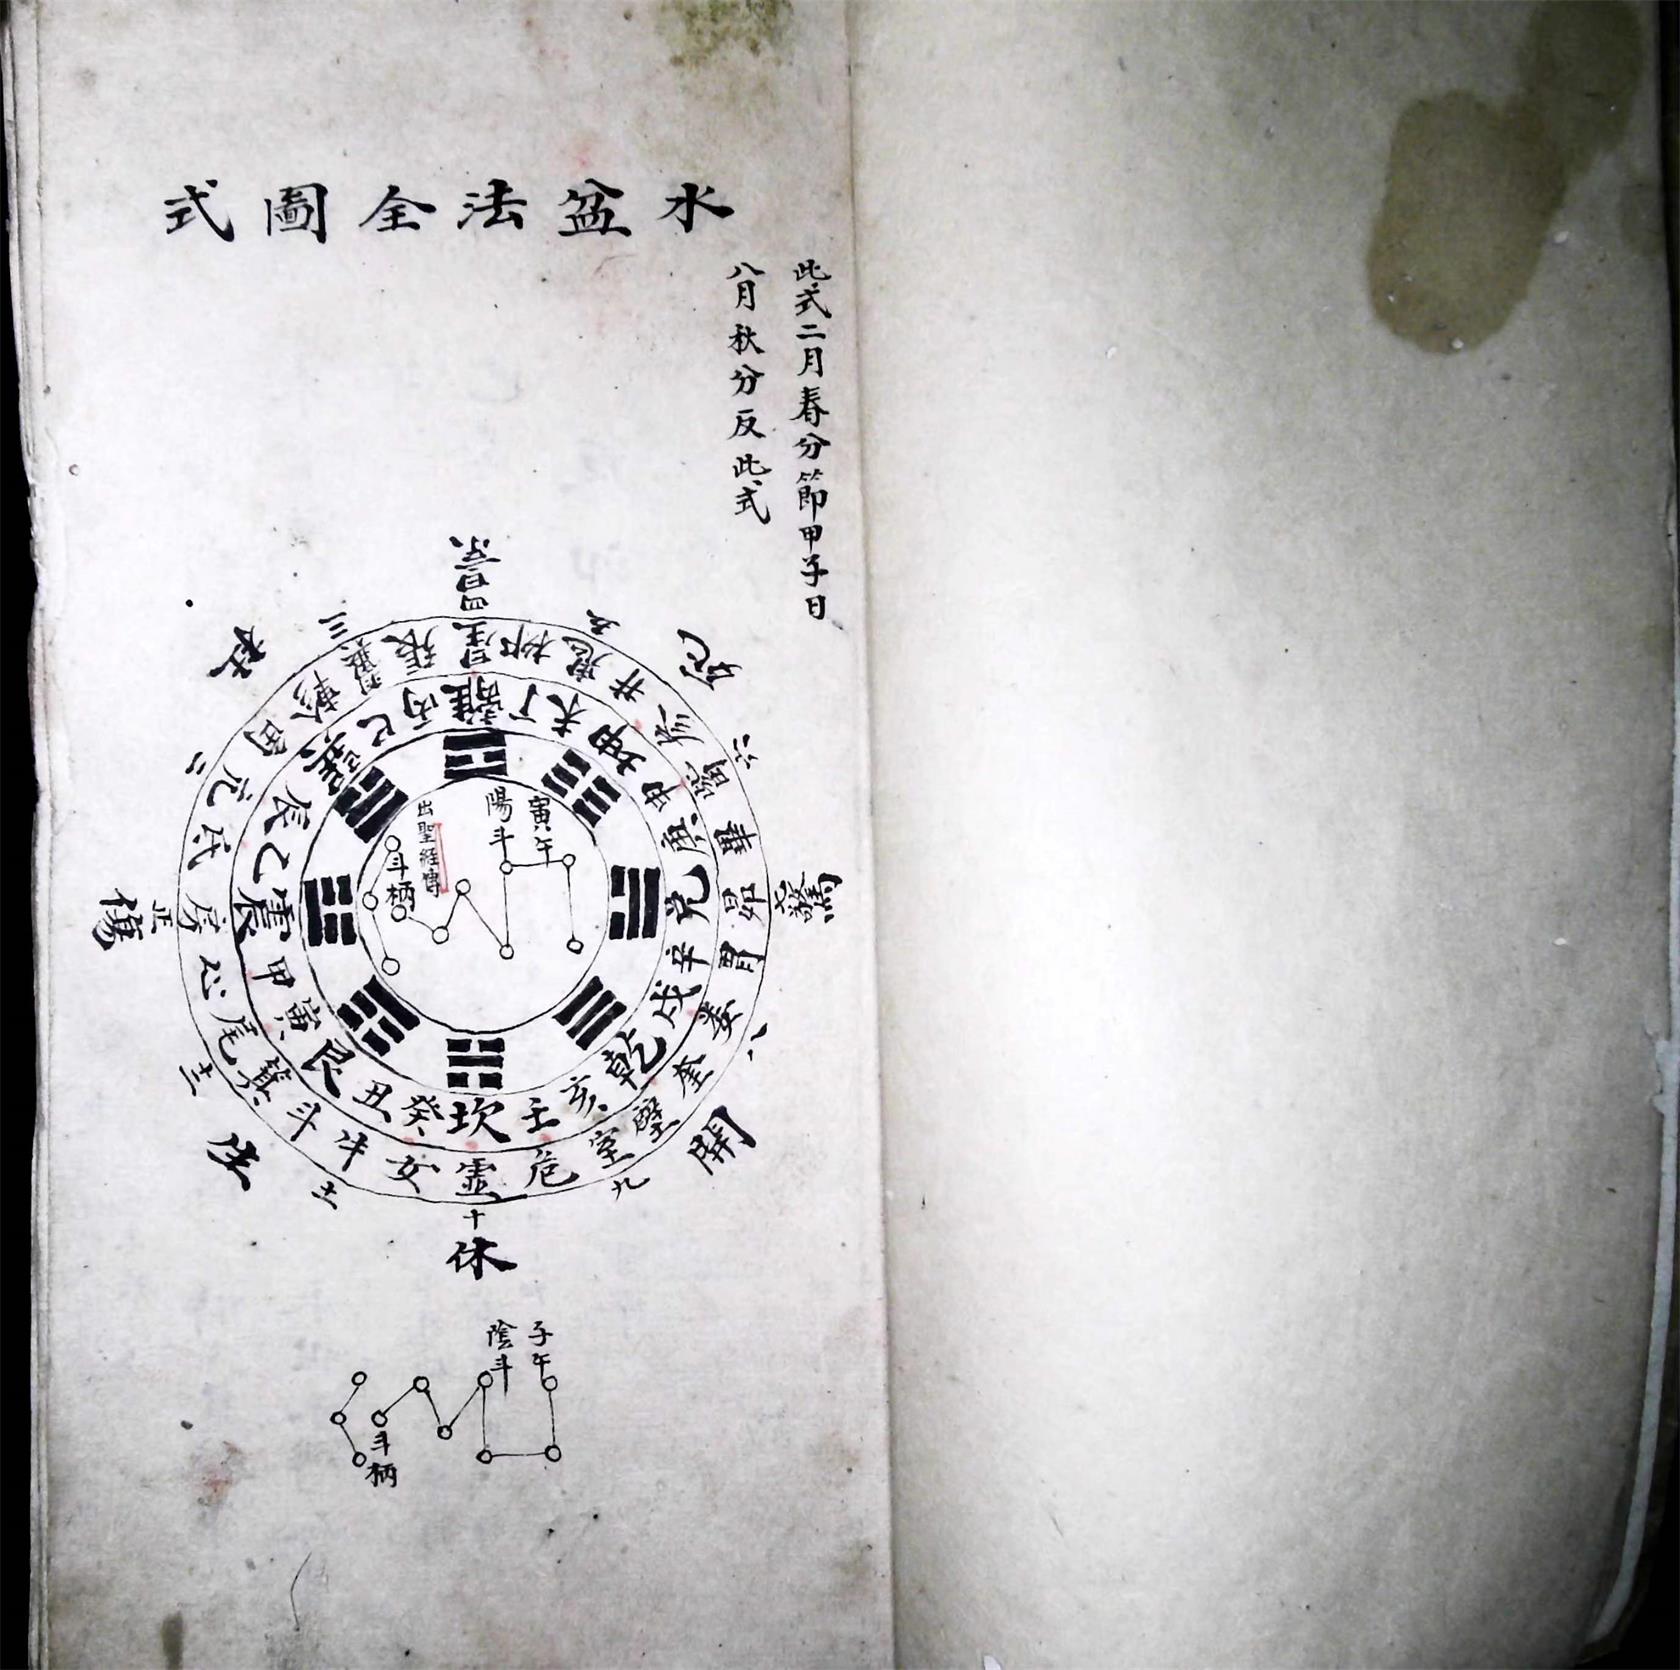 水盆法全圖式
此式二月春分節甲子日
八月秋分反此式
景
四
五
死
六
驚
七
八
開
九
休
十
十一
生
十二
傷
正
二
杜
三
星柳鬼井參觜畢昴胃婁奎壁室危虛女牛斗箕尾心房氐亢角軫翼張
離丁未坤申庚兌辛戌乾亥壬坎癸丑艮寅甲震乙辰巽巳丙
寅午
陽斗
出聖經傳
斗柄
子午
陰斗
斗柄